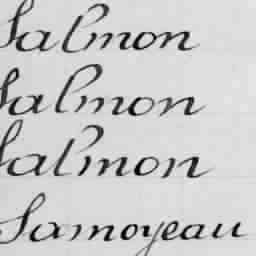 Salmon
Salmon
Salmon
Samoyeau